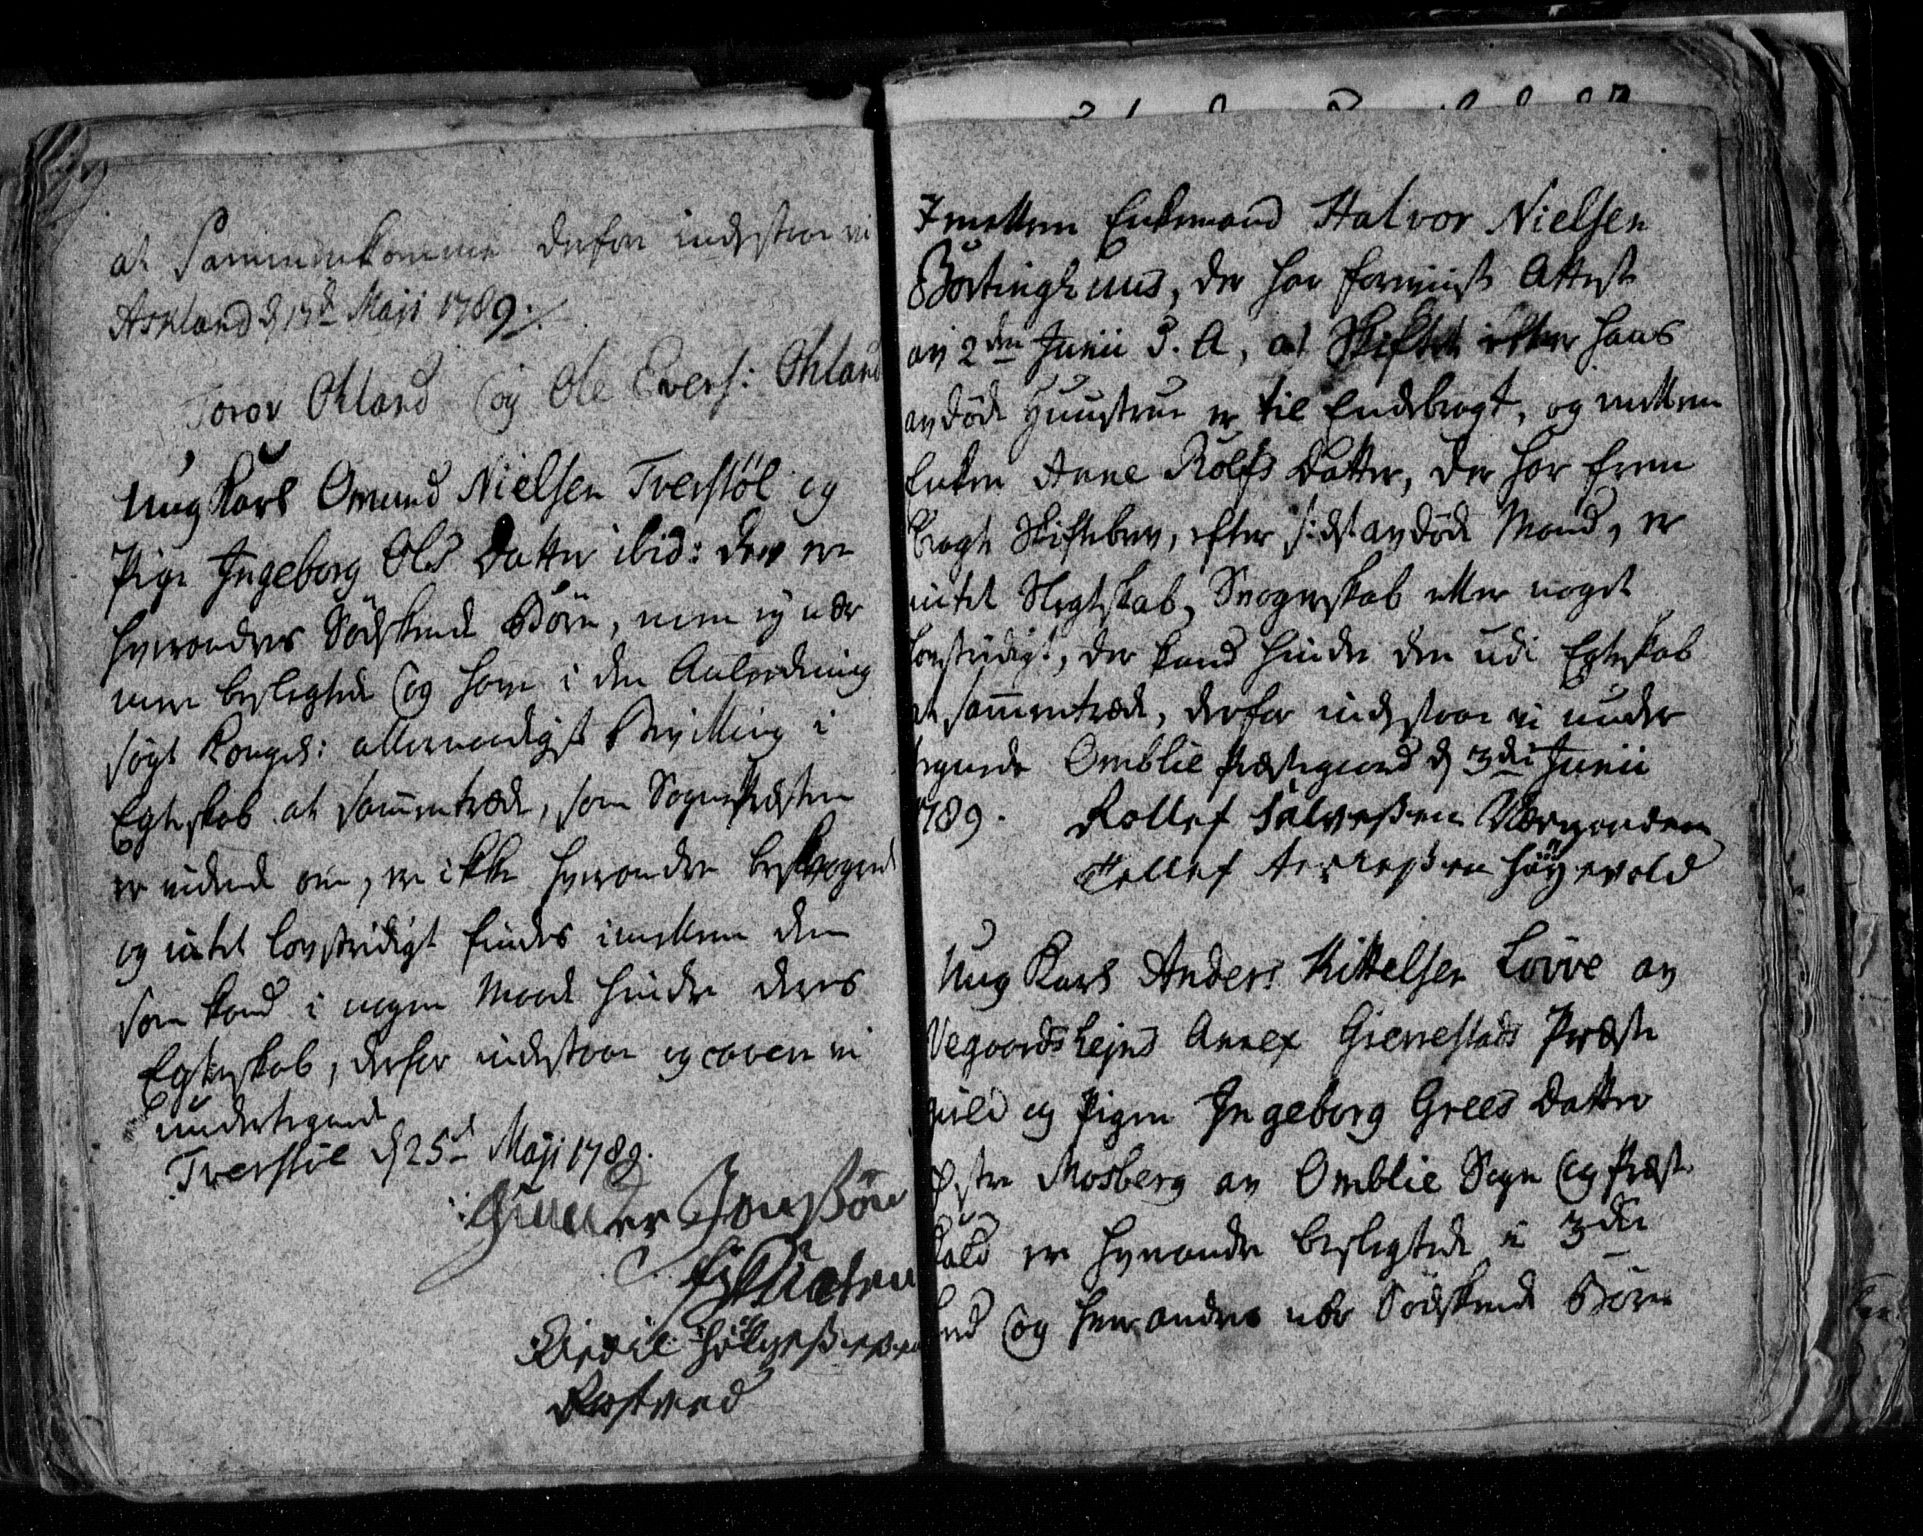 at Sammenkomme derfor indestaar vi
Askland d 13d Maji 1789
Torov Okland og Ole Evers: Okland
Ung Karl Omund Nielsen Tverstöl og
Pige Ingeborg Ols Datter ibid: der ere
hverandres Södskende Börn, men ej nær
mere beslegtede og have i den Anledning
sögt Kongel: allernaadigst Bevilling i
Egteskab at sammentræde, som Sognepræsten
er vidende om, er ikke hverandre besvogrede
og intet lovstridigt findes imellem dem
som kand i nogen Maade hindre deres
Egteskab, derfor indestaar og cavere vi
undertegnede
Tverstöl d 25d Maji 1789.
Gunder Jenssön
Rostved
Imellem Enkemand Halvor Nielsen
Bortinghuus, der har forevist Attest
av 2den Junii S. A, at Skiftet efter hans
avdöde Huustrue er til Endebragt, og mellem
Enken Anne Rolfs Datter, der har frem
bragt Skiftebrev, efter sidst avdöde Mand, er
intet Slegtskab, Svogerskab eller noget
lovstridigt, der kand hindre dem udi Egteskab
at sammentræde, derfor indestaar vi under
tegnede Omblie Præstegaard d 3die Junii
1789. Rollef Salvesßen
Tellef Terkelßen Höÿevold
Ung Karl Anders Kittelsen Lövve av
Vegaardshejns Annex Gierrestads Præste
gield og Pigen Ingeborg Grees Datter
Östre Mosberg av Omblie Sogn og Præste
kald ere hverandre beslegtede i 3die
Leed og hverandres nær Södskende Börn